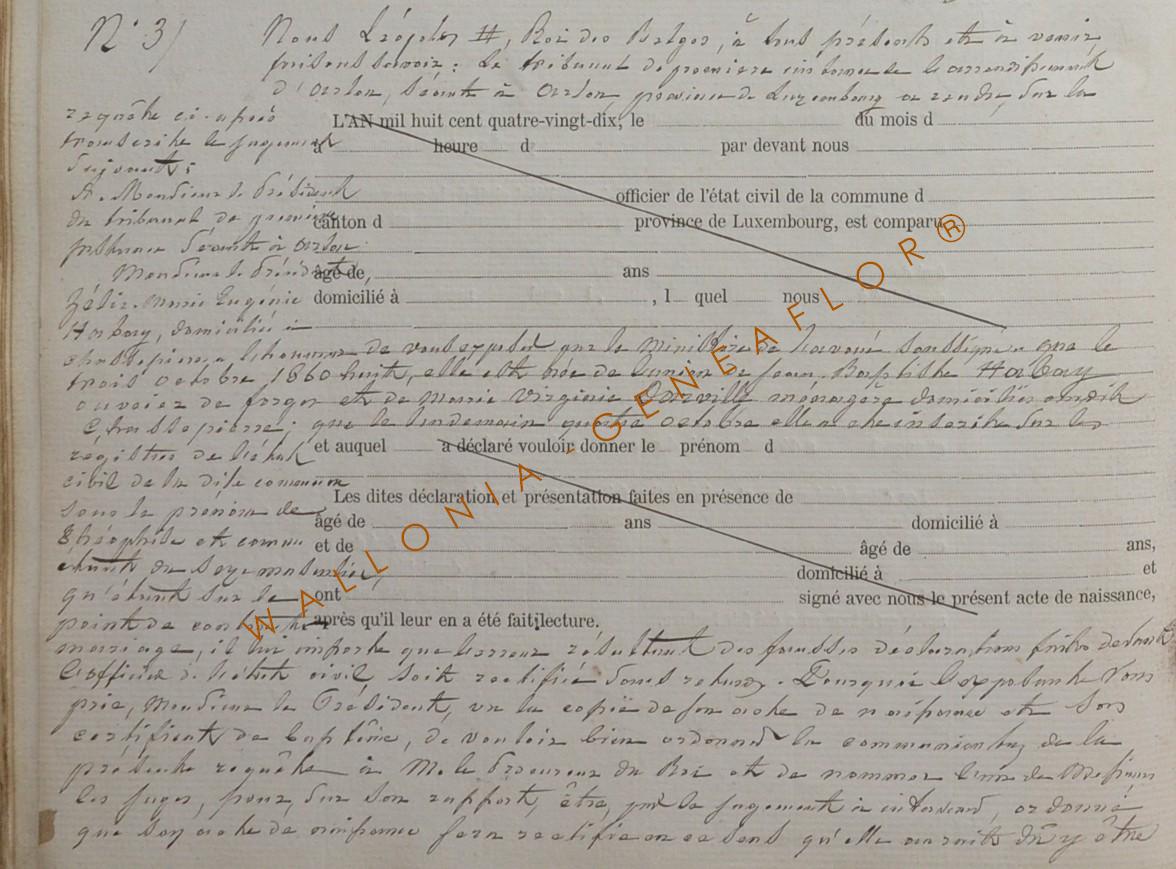 N° 3)
Nous Léopold II, Roi des Belges, à tous présents et à venir
faisons savoir : Le tribunal de première instance de l'arrondissement
d'Arlon, séant à Arlon, province de Luxembourg a rendu, sur la
requête ci-après
L'AN mil huit cent quatre-vingt-dix, le du mois d
transcrite le jugement
à heure d par devant nous
suivant :
A Monsieur le Président
officier de l'état civil de la commune d
du tribunal de première
canton d province de Luxembourg, est comparu
instance séant à Arlon
Monsieur le Président,
âgé de, ans
Zélie Marie Eugénie
domicilié à , l quel nous
Harbay, domiciliée à
Chassepierre, a l'honneur de vous exposer par le Ministère de l'avoué soussigné que le
trois octobre 1860 huit, elle est née de l'union de Jean Baptiste Harbay
ouvrier de forges et de Marie Virginie ménagère domiciliés audit
Chassepierre; que le lendemain quatre octobre elle a été inscrite sur les
registres de l'état
et auquel a déclaré vouloir donner le prénom d
civil de la dite commune
Les dites déclaration et présentation faites en présence de
sous le prénom de
âgé de ans domicilié à
Théophile et comme
et de âgé de ans,
étant du sexe masculin,
domicilié à et
qu'étant sur le
ont signé avec nous le présent acte de naissance,
point de contracter
après qu'il leur en a été fait lecture.
mariage, il lui importe que l'erreur résultant des fausses déclarations faites devant
l'officier de l'état civil soit rectifiée sans retard. Pourquoi l'exposante Vous
prie, Monsieur le Président, vu la copie de son acte de naissance et son
certificat de baptême, de vouloir bien ordonner la communication de la
présente requête à M. le Procureur du Roi et de nommer l'un de Messieurs
les Juges, pour, sur son rapport, être, par le jugement à intervenir, ordonné
que son acte de naissance sera rectifié en ce sens qu'elle aurait dû y être
WALLONIA - GENEAFLOR®